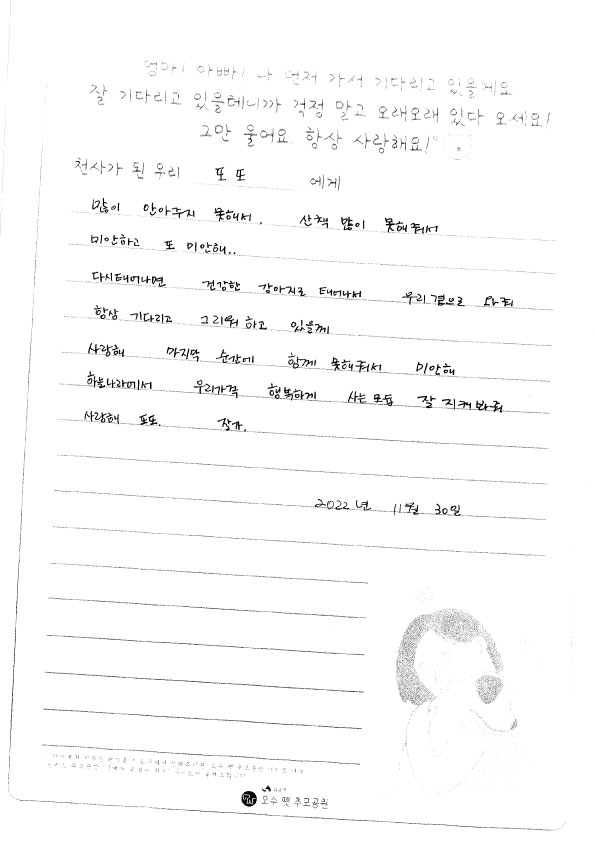 엄마! 아빠! 나 먼저 가서 기다리고 있을게요
잘 기다리고 있을테니까 걱정 말고 오래오래 있다 오세요!
그만 울어요 항상 사랑해요!"
천사가 된 우리 또또 에게
많이 안아주지 못해서, 산책 많이 못해줘서
미안하고 또 미안해..
다시태어나면 건강한 강아지로 태어나서 우리곁으로 와줘
항상 기다리고 그리워 하고 있을께
사랑해 마지막 순간에 함께 못해줘서 미안해
하늘나라에서 우리가족 행복하게 사는모습 잘 지켜봐줘
사랑해 또또. 잘가.
2022년 11월 30일
오수 펫 추모공원